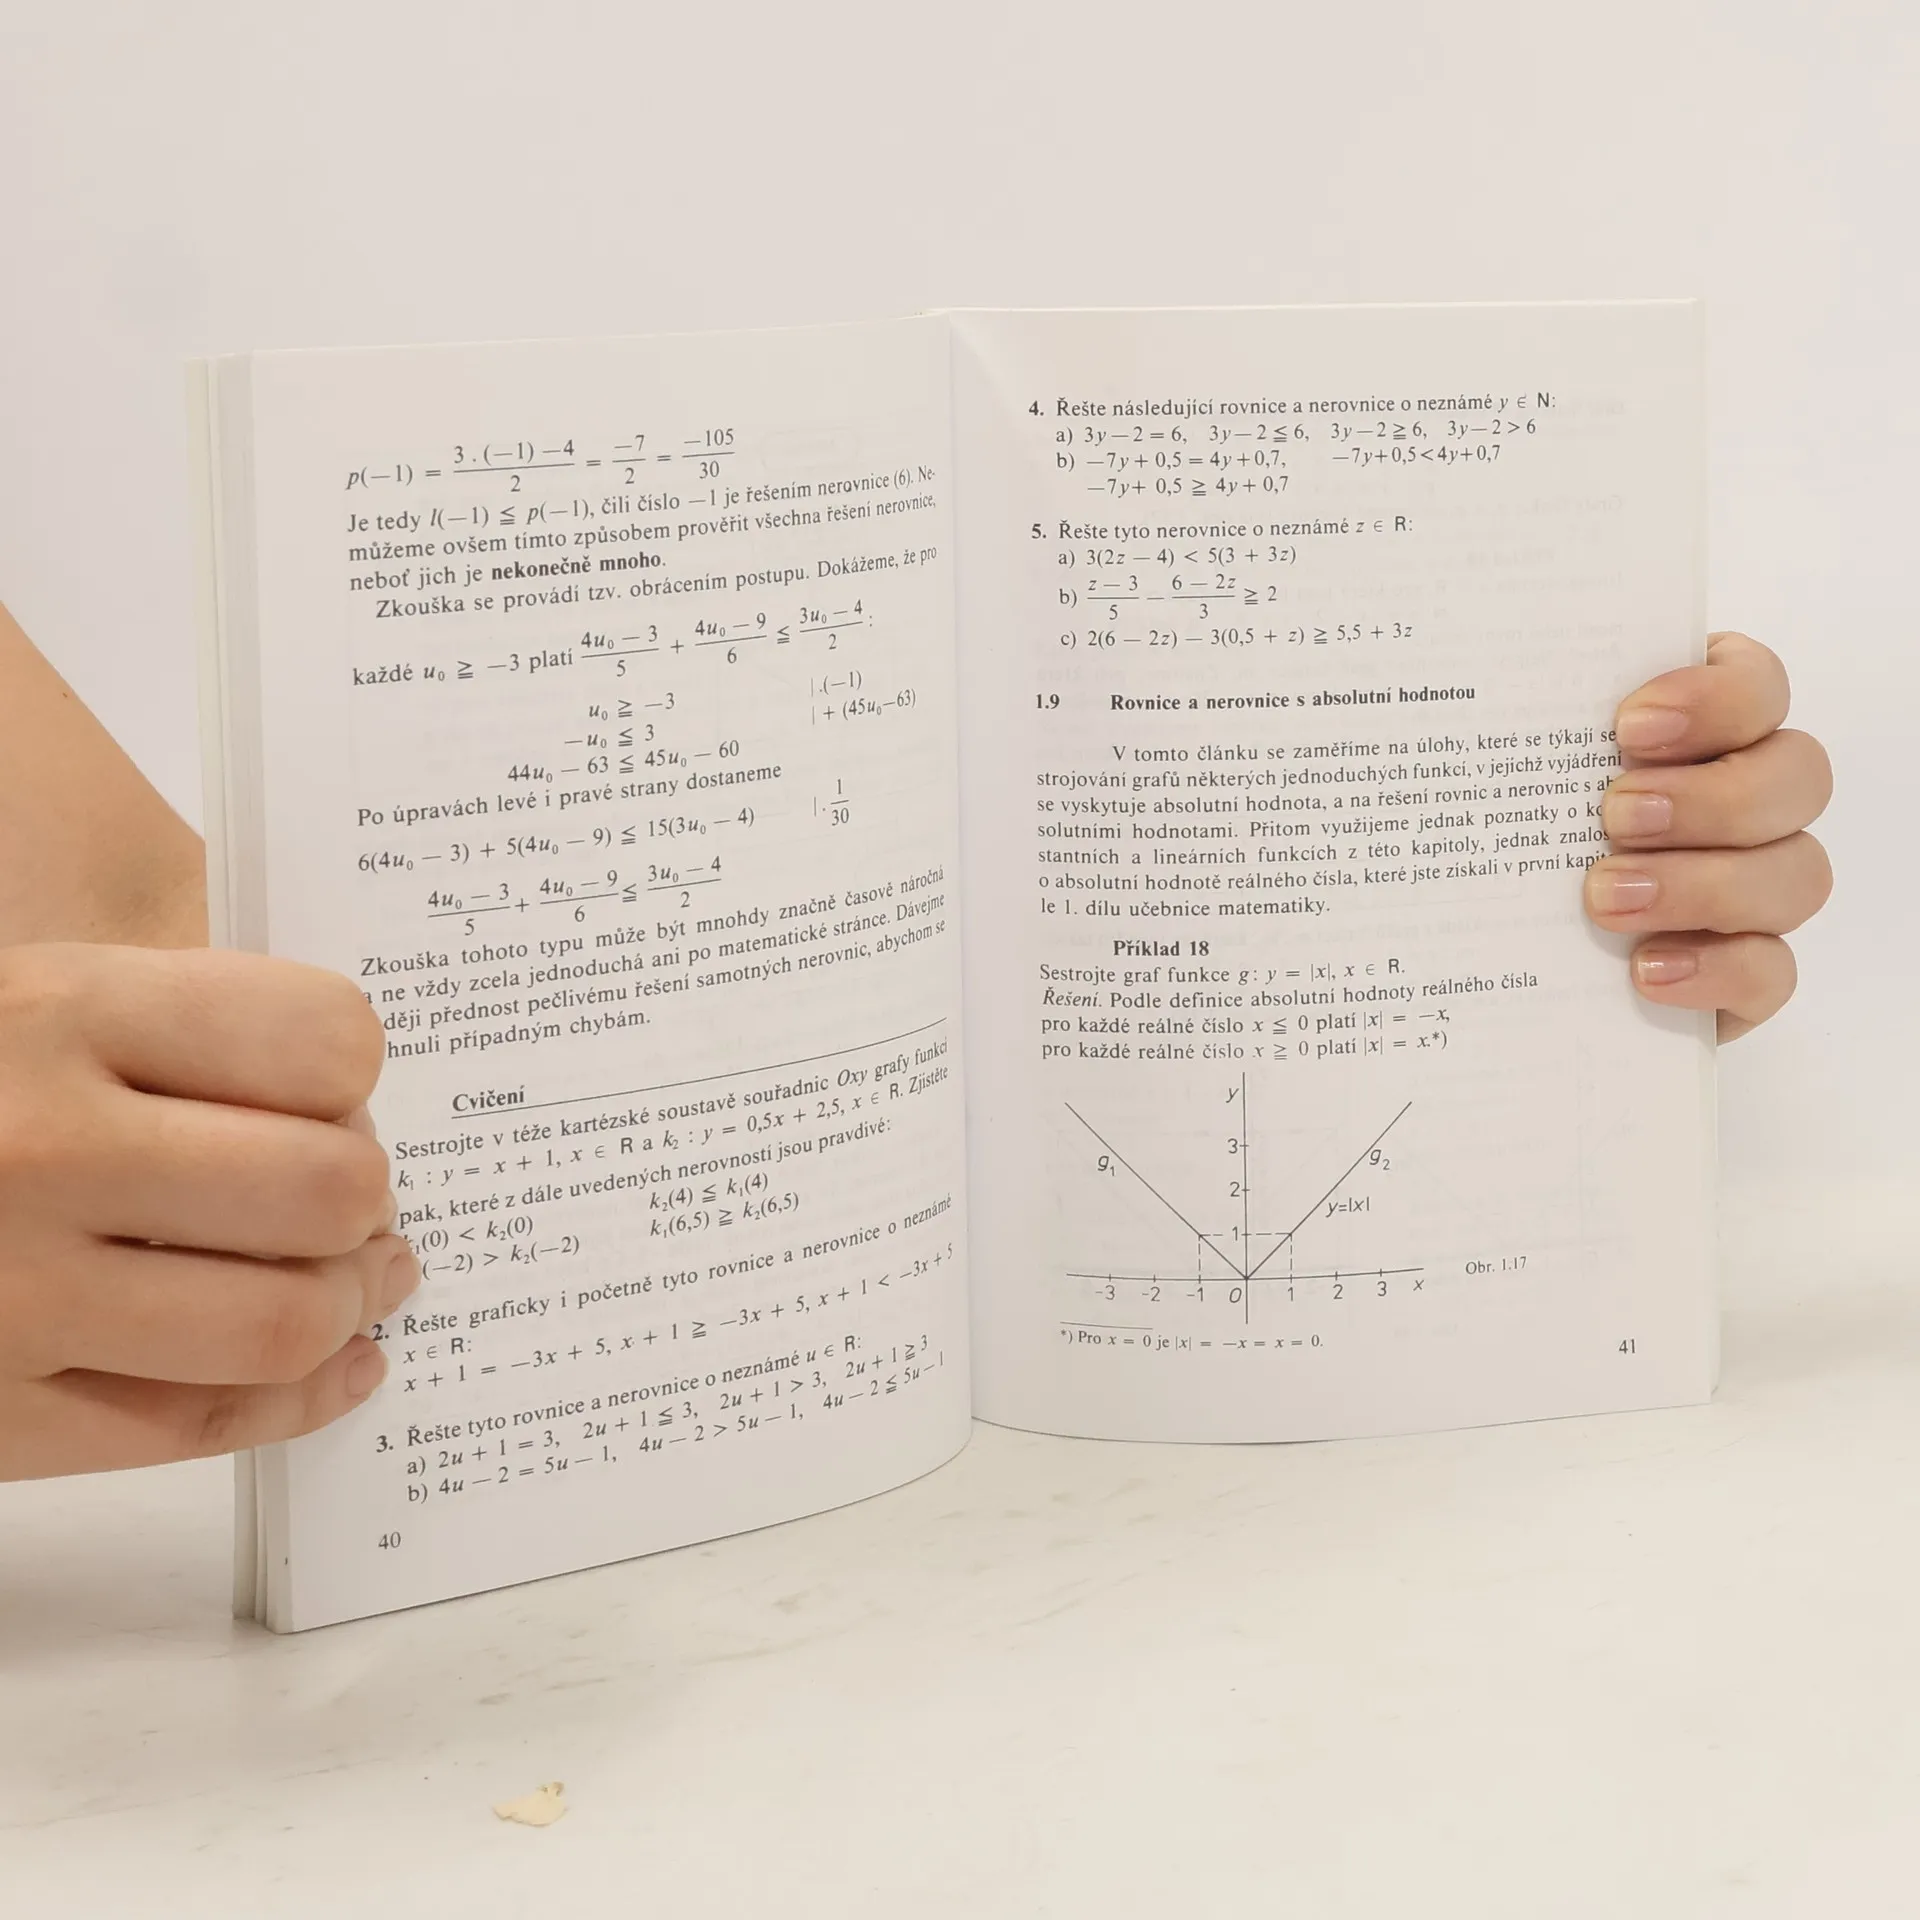 p(−1) = 3 . (−1) −4 / 2 = −7 / 2 = −105 / 30
Je tedy l(−1) ≦ p(−1), čili číslo −1 je řešením nerovnice (6). Ne-
můžeme ovšem tímto způsobem prověřit všechna řešení nerovnice,
neboť jich je nekonečně mnoho.
Zkouška se provádí tzv. obrácením postupu. Dokážeme, že pro
každé u₀ ≧ −3 platí 4u₀ − 3 / 5 + 4u₀ − 9 / 6 ≦ 3u₀ − 4 / 2 :
u₀ ≧ −3 | .(−1)
−u₀ ≦ 3 | + (45u₀−63)
44u₀ − 63 ≦ 45u₀ − 60
Po úpravách levé i pravé strany dostaneme
6(4u₀ − 3) + 5(4u₀ − 9) ≦ 15(3u₀ − 4) | . 1 / 30
4u₀ − 3 / 5 + 4u₀ − 9 / 6 ≦ 3u₀ − 4 / 2
Zkouška tohoto typu může být mnohdy značně časově náročná
a ne vždy zcela jednoduchá ani po matematické stránce. Dávejme
ději přednost pečlivému řešení samotných nerovnic, abychom se
hnuli případným chybám.
Cvičení
Sestrojte v téže kartézské soustavě souřadnic Oxy grafy funkcí
k₁ : y = x + 1, x ∈ R a k₂ : y = 0,5x + 2,5, x ∈ R. Zjistěte
pak, které z dále uvedených nerovností jsou pravdivé:
k₁(0) < k₂(0) k₂(4) ≦ k₁(4)
(−2) > k₂(−2) k₁(6,5) ≧ k₂(6,5)
2. Řešte graficky i početně tyto rovnice a nerovnice o neznámé
x ∈ R:
x + 1 = −3x + 5, x + 1 ≧ −3x + 5, x + 1 < −3x + 5
3. Řešte tyto rovnice a nerovnice o neznámé u ∈ R:
a) 2u + 1 = 3, 2u + 1 ≦ 3, 2u + 1 > 3, 2u + 1 ≧ 3
b) 4u − 2 = 5u − 1, 4u − 2 > 5u − 1, 4u − 2 ≦ 5u − 1
40
4. Řešte následující rovnice a nerovnice o neznámé y ∈ N:
a) 3y − 2 = 6, 3y − 2 ≦ 6, 3y − 2 ≧ 6, 3y − 2 > 6
b) −7y + 0,5 = 4y + 0,7, −7y+0,5<4y+0,7
−7y+ 0,5 ≧ 4y + 0,7
5. Řešte tyto nerovnice o neznámé z ∈ R:
a) 3(2z − 4) < 5(3 + 3z)
b) z − 3 / 5 − 6 − 2z / 3 ≧ 2
c) 2(6 − 2z) − 3(0,5 + z) ≧ 5,5 + 3z
1.9 Rovnice a nerovnice s absolutní hodnotou
V tomto článku se zaměříme na úlohy, které se týkají se
strojování grafů některých jednoduchých funkcí, v jejichž vyjádření
se vyskytuje absolutní hodnota, a na řešení rovnic a nerovnic s ab
solutními hodnotami. Přitom využijeme jednak poznatky o ko
stantních a lineárních funkcích z této kapitoly, jednak znalos
o absolutní hodnotě reálného čísla, které jste získali v první kapito
le 1. dílu učebnice matematiky.
Příklad 18
Sestrojte graf funkce g: y = |x|, x ∈ R.
Řešení. Podle definice absolutní hodnoty reálného čísla
pro každé reálné číslo x ≦ 0 platí |x| = −x,
pro každé reálné číslo x ≧ 0 platí |x| = x.*)
y
3
g₁ g₂
2
y=|x|
1
-3 -2 -1 0 1 2 3 x
Obr. 1.17
*) Pro x = 0 je |x| = −x = x = 0.
41